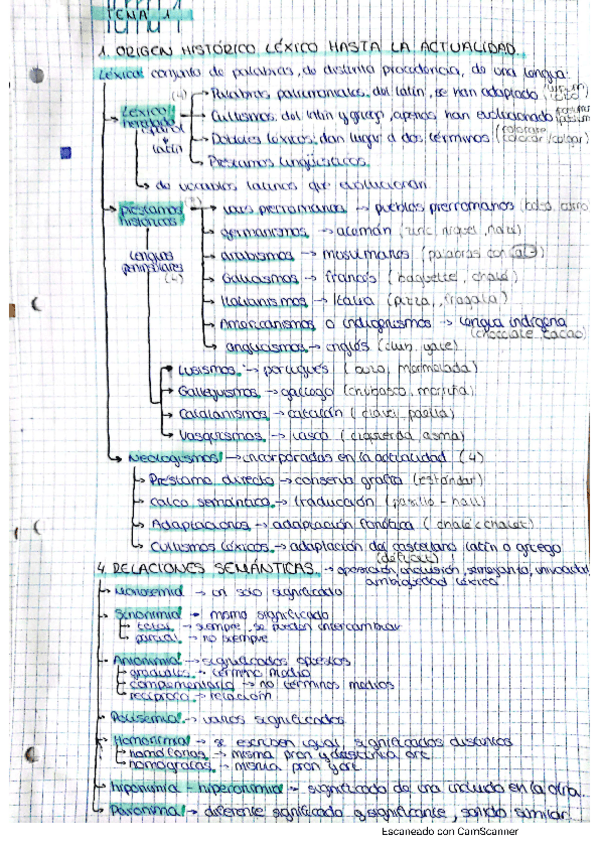 TEMA 1
1. ORIGEN HISTÓRICO LÉXICO HASTA LA ACTUALIDAD.
Léxico: conjunto de palabras, de distinta procedencia, de una lengua.
(4) → Palabras patrimoniales. del latín, se han adaptado
Léxico heredado → Cultismos. del latín y griego, apenas han evolucionado
latín → Dobletes léxicos. dan lugar a dos términos (colocar/colgar)
→ Préstamos lingüísticos
→ de vocablos latinos que evolucionan
Préstamos históricos → voces prerromanas → pueblos prerromanos
germanismos → alemán
Lenguas peninsulares (4)
arabismos → musulmanes (palabras con al-)
Galicismos → francés (baguette, chalé)
Italianismos → Italia (pizza, fragata)
Americanismos o indigenismos → lengua indígena
(chocolate, cacao)
anglicismos → inglés
Lusismos. → portugués (mermelada)
Galleguismos → gallego (chubasco, morriña)
Catalanismos → catalán (clavel, paella)
Vasquismos. → vasco (izquierda, asma)
Neologismos → incorporadas en la actualidad (4)
→ Préstamo directo → conserva grafía (estándar)
→ Calco semántico. → traducción (pasillo - hall)
→ Adaptaciones → adaptación fonética (chalé < chalet)
→ Cultismos léxicos. → adaptación del castellano latín o griego
4. RELACIONES SEMÁNTICAS. → oposición, inclusión, semejanza,
ambigüedad léxica
→ Monosemia → un solo significado
→ Sinonimia → mismo significado
total → siempre, se pueden intercambiar
parcial → no siempre
→ Antonimia → significados opuestos
graduales → término medio
complementaria → no términos medios
recíproca → relación
→ Polisemia → varios significados
→ Homonimia → se escriben igual, significados distintos
homófonas → misma pron y distinta ort
homógrafas → misma pron y ort
→ hiponimia - hiperonimia → significado de una incluido en la otra.
→ Paronimia → diferente significado y significante, sonido similar.
Escaneado con CamScanner